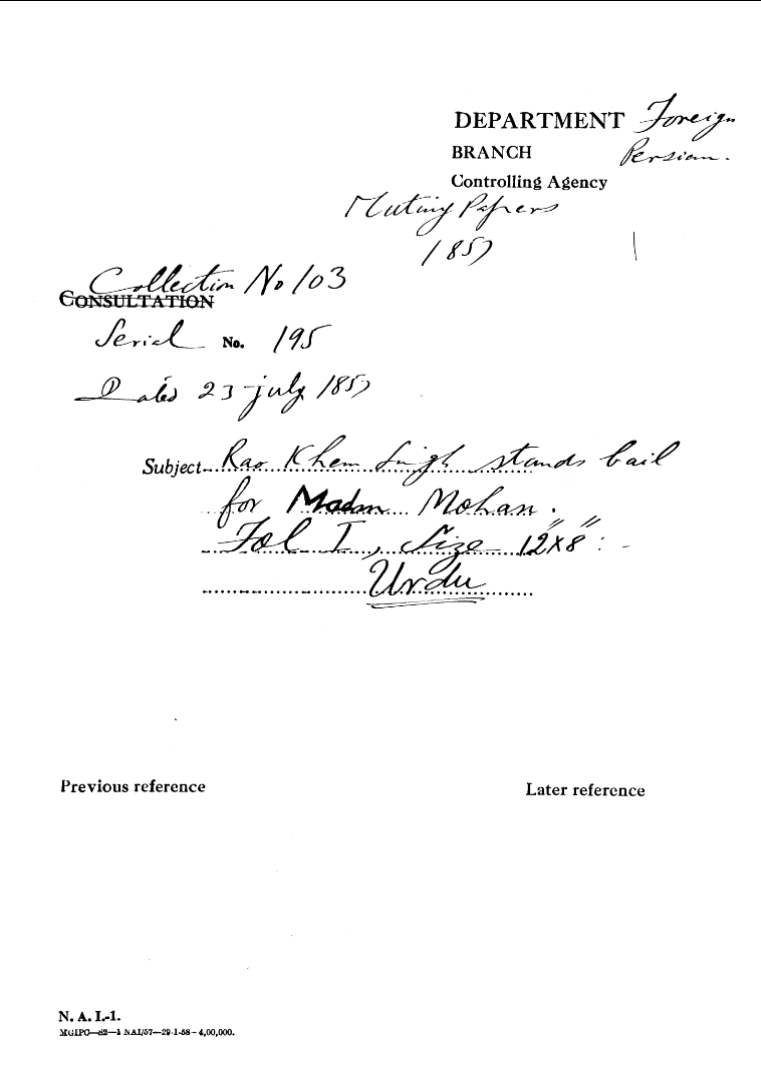 DEPARTMENT Foreign
BRANCH Persian.
Controlling Agency
Mutiny Papers
1857
Collection No 103
CONSULTATION
Serial No. 195
Dated 23 July 1857
Subject Rao Khem Singh stands bail
for Madan Mohan.
Fol I, Size 12"x8":-
Urdu
Previous reference
Later reference
N. A. I.-1.
MGIPC—S2—1 NAI/57—29-1-58—4,00,000.